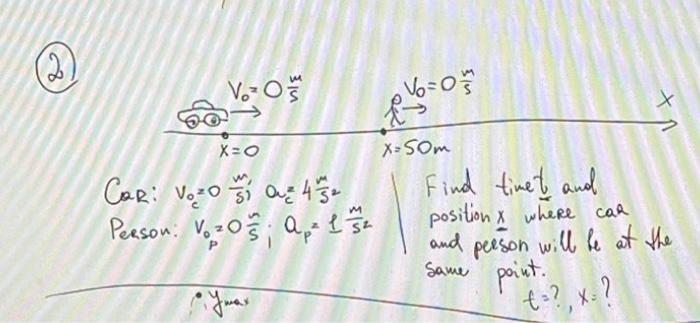 2)
V₀=0 m/s
V₀=0 m/s
x
x=0
x=50m
Car: V₀c=0 m/s; ac=4 m/s²
Person: V₀p=0 m/s; ap=1 m/s²
Find time t and
position x where car
and person will be at the
same point.
t=?, x=?
ymax